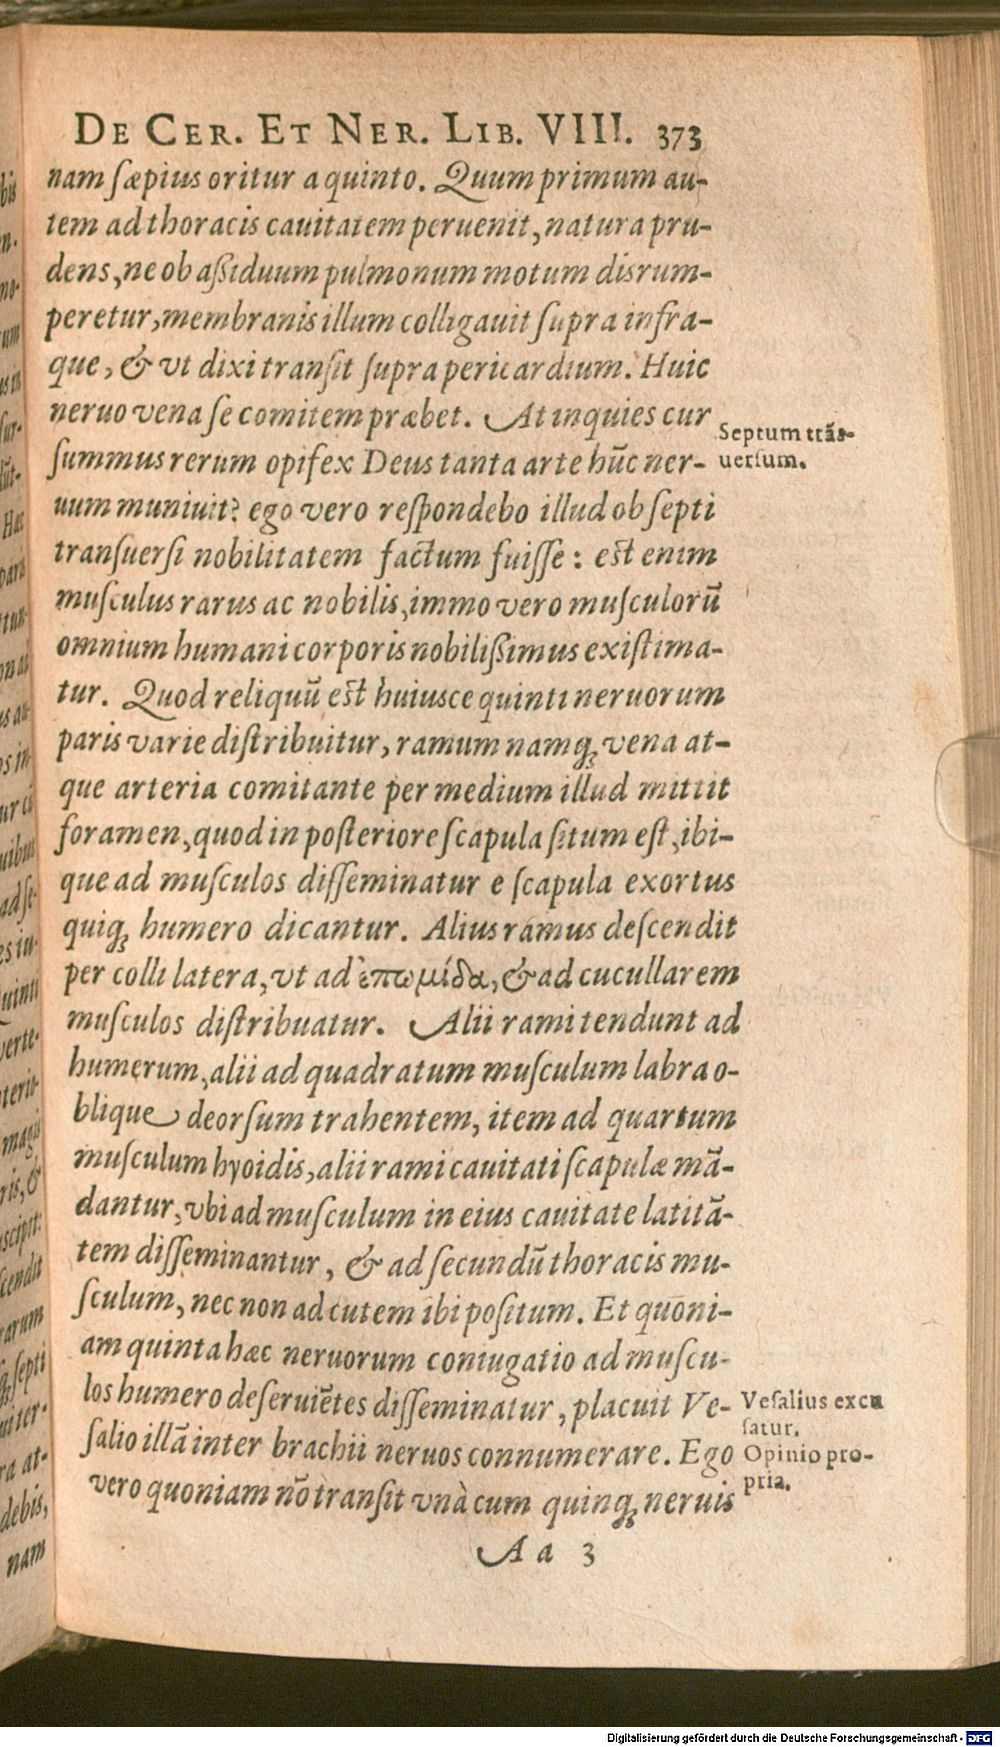 DE CER. ET NER. LIB. VIII. 373
nam sæpius oritur a quinto. Quum primum au-
tem ad thoracis cauitatem peruenit, natura pru-
dens, ne ob aßiduum pulmonum motum disrum-
peretur, membranis illum colligauit supra infra-
que, & vt dixi transit supra pericardium. Huic
neruo vena se comitem præbet. At inquies cur
summus rerum opifex Deus tanta arte hūc ner-
uum muniuit? ego vero respondebo illud ob septi
transuersi nobilitatem factum fuisse: est enim
musculus rarus ac nobilis, immo vero musculorū
omnium humani corporis nobilißimus existima-
tur. Quod reliquū est huiusce quinti neruorum
paris varie distribuitur, ramum namq; vena at-
que arteria comitante per medium illud mittit
foramen, quod in posteriore scapula situm est, ibi-
que ad musculos disseminatur e scapula exortus
quiq; humero dicantur. Alius ramus descendit
per colli latera, vt ad ἐπωμίδα, & ad cucullarem
musculos distribuatur. Alii rami tendunt ad
humerum, alii ad quadratum musculum labra o-
blique deorsum trahentem, item ad quartum
musculum hyoidis, alii rami cauitati scapulæ mā-
dantur, vbi ad musculum in eius cauitate latitā-
tem disseminantur, & ad secundū thoracis mu-
sculum, nec non ad cutem ibi positum. Et quoni-
am quinta hæc neruorum coniugatio ad muscu-
los humero deseruiētes disseminatur, placuit Ve-
salio illā inter brachii neruos connumerare. Ego
vero quoniam nō transit vnà cum quinq; neruis
Aa 3
Septum trās-
uersum.
Vesalius excu
satur.
Opinio pro-
pria.
bis
n-
no-
um
us in
sur-
Hac
paris
tun-
on ad
us au-
os in-
ur cū
uibus
ad se-
es in-
Quinti
verte-
terio-
magis
ris, &
scipit:
scendit
rarum
septi
niter-
ra at-
debis,
nam
Digitalisierung gefördert durch die Deutsche Forschungsgemeinschaft - DFG